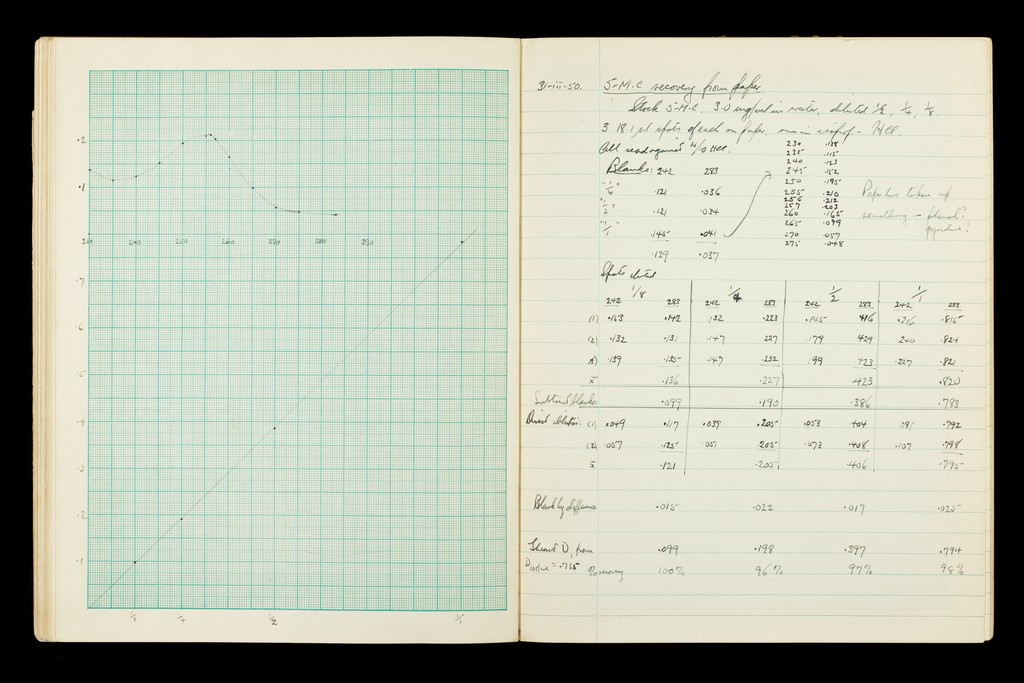 .2
.1
230 240 250 260 270 280 290
.7
.6
.5
.4
.3
.2
.1
1/8 1/4 1/2 1/1
31-iii-50. 5-M.C recovery from paper.
Stock 5-M.C. 3.0 mg/ml in water, diluted 1/2, 1/4, 1/8.
3 18.1 µl spots of each on paper, run in isoprop. - HCl.
All read against N/10 HCl.
230 .138
235 .115
240 .123
245 .152
250 .195
255 .210
256 .212
257 .203
260 .165
265 .099
270 .057
275 .048
Blanks: 242 283
"1/4" .121 .036
"1/2" .121 .034
"1/1" .145 .041
.129 .037
Paper has taken up
something - phenol?
pyridine?
Spots eluted
1/8 1/4 1/2 1/1
242 283 242 283 242 283 242 283
(1) .153 .142 .132 .223 .145 .416 .216 .815
(2) .132 .131 .147 .227 .179 .429 .240 .824
(3) .139 .135 .147 .232 .199 .423 .227 .821
x̄ .136 .227 .423 .820
Subtract blanks: .099 .190 .386 .783
Direct dilution: (1) .049 .117 .039 .205 .053 .404 .091 .792
(2) .057 .125 .051 .205 .073 .408 .107 .798
x̄ .121 .205 .406 .795
Blank by difference .015 .022 .017 .025
Theoret D, from .099 .198 .397 .794
% recovery 100% 96% 97% 98%